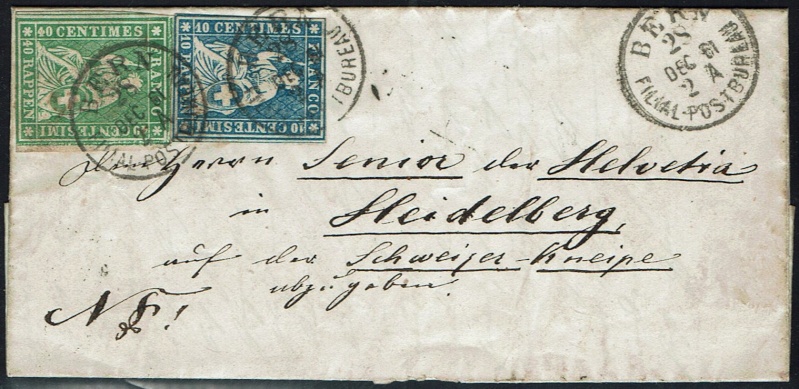 40 CENTIMES
40 RAPPEN
FRANCO
40 CENTESIMI
10 CENTIMES
RAPPEN
FRANCO
10 CENTESIMI
BERN
DEC
FILIAL-POS
BUREAU
BERN
28
DEC 61
2 A
FILIAL-POSTBUREAU
Herrn Senior der Helvetia
in
Heidelberg,
auf der Schweizer-Kneipe
abzugeben.